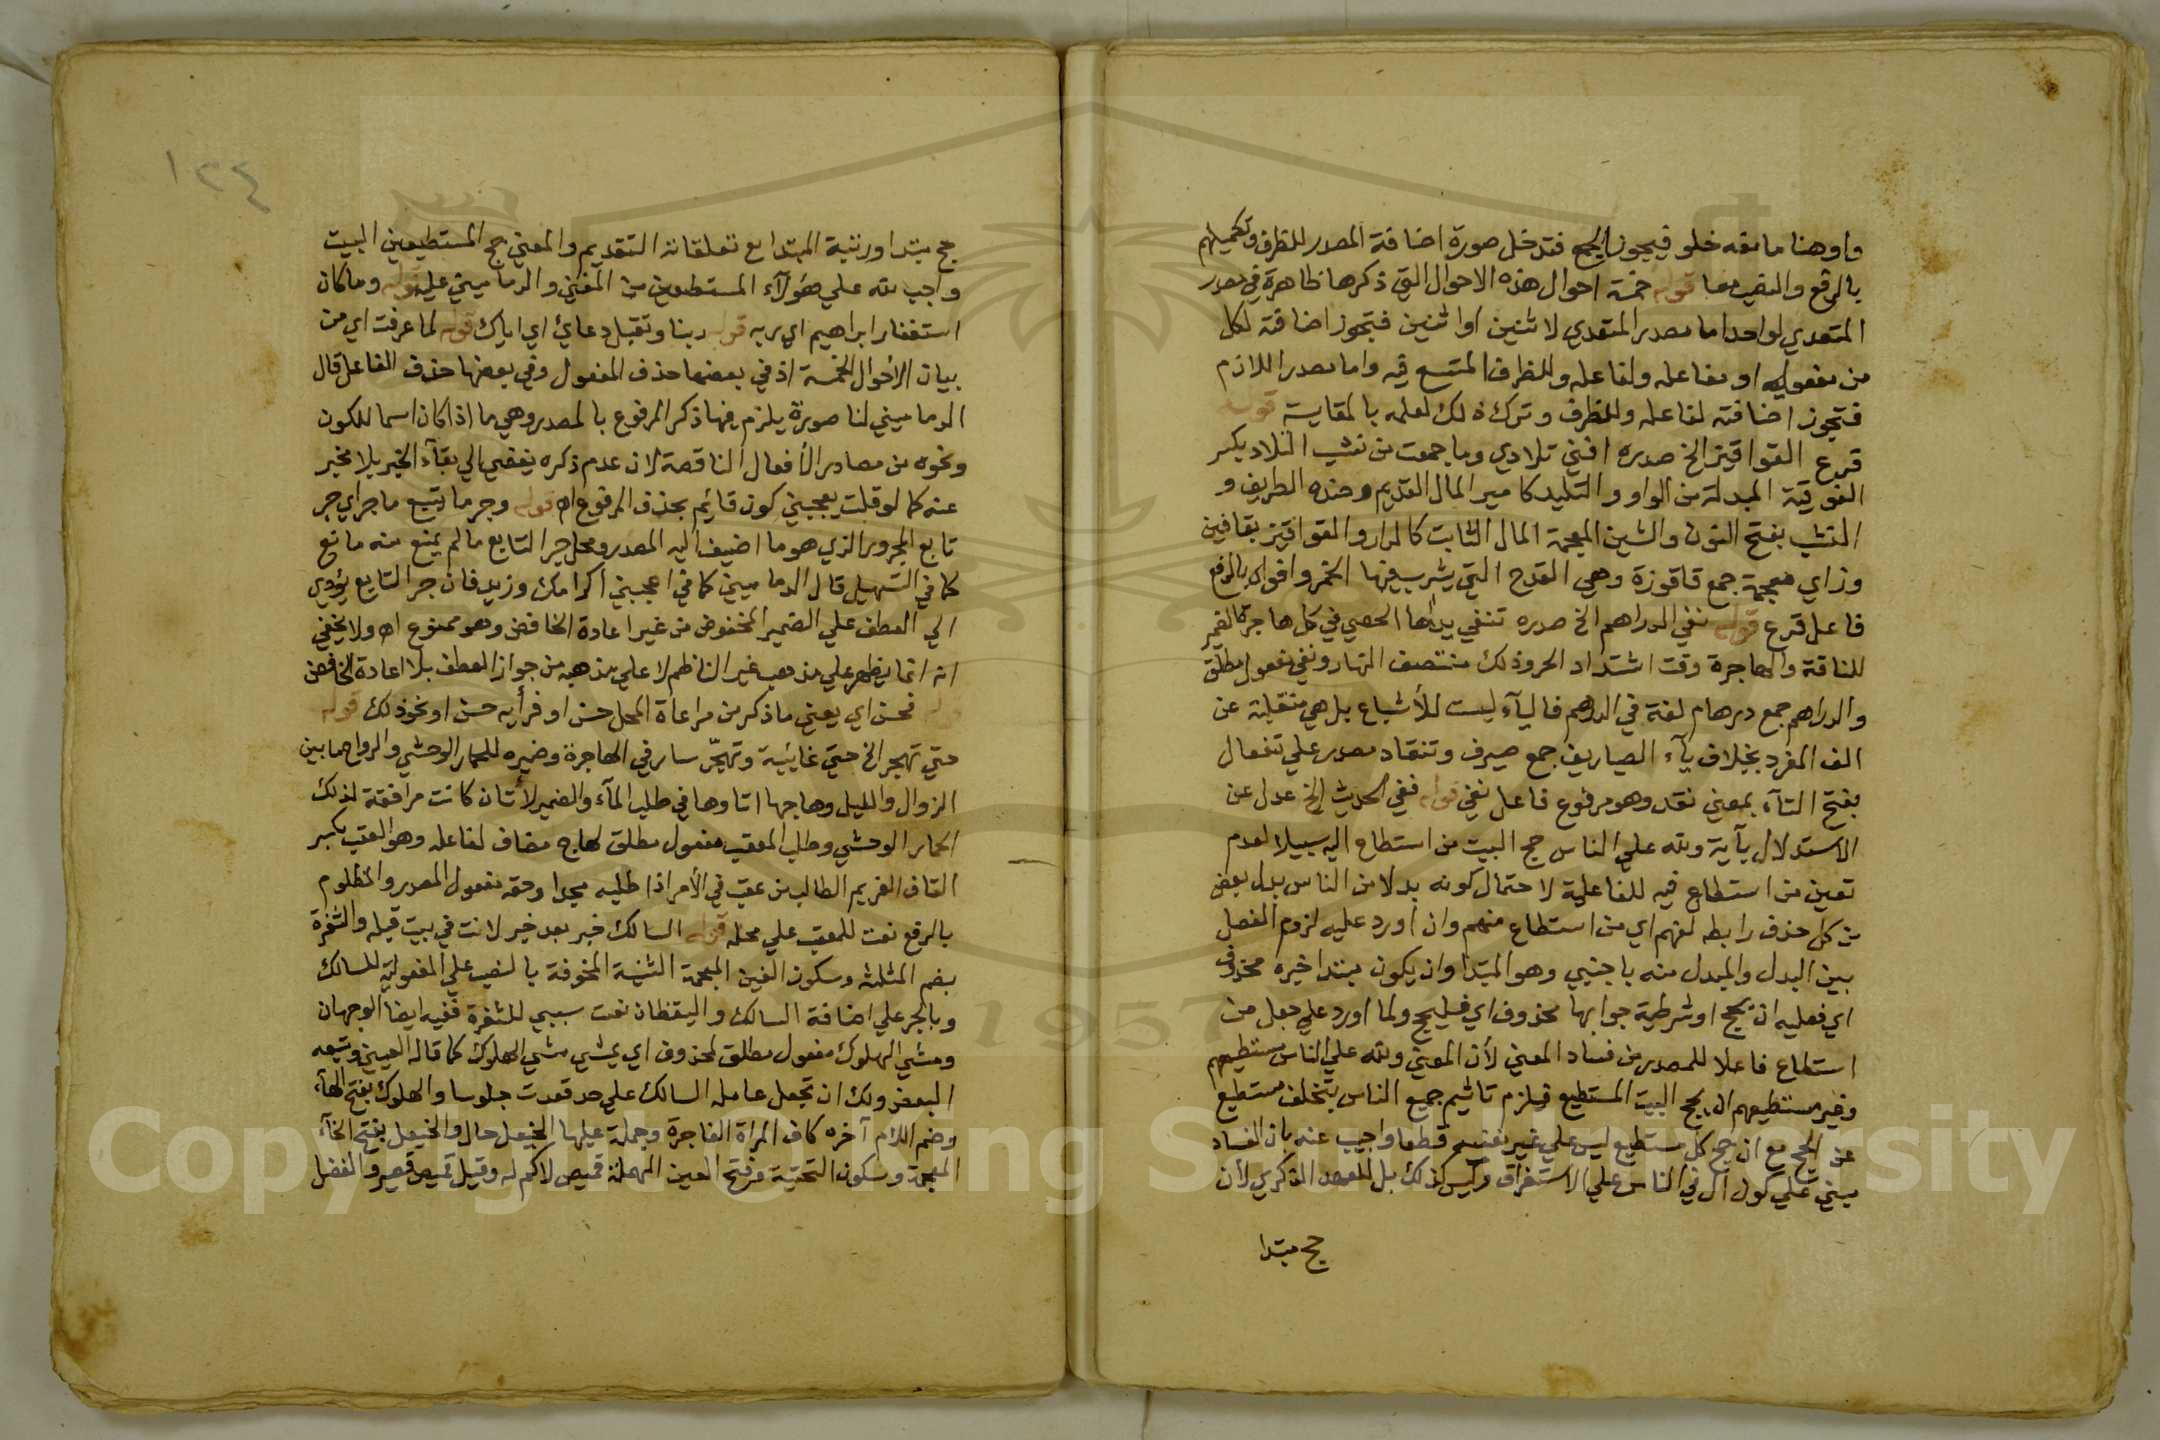 واو هنا مانعة خلو فيجوز الجمع فتدخل صورة اضافة المصدر للظرف وتكميلهم
بالرفع والنصب معا قوله خمسة احوال هذه الاحوال التي ذكرها ظاهرة في مصدر
المتعدي لواحد اما مصدر المتعدي لاثنين او اثنين فتجوز اضافته لكل
من مفعوليه او مفاعله ولفاعله وللظرف المتسع فيه واما مصدر اللازم
فتجوز اضافته لفاعله وللظرف وترك ذلك لعلمه بالمقايسة قوله
قرع القواقيز الخ صدره افني تلادي وما جمعت من نشب التلاد بكسر
الفوقية المبدلة من الواو والتليد كامير المال القديم وضده الطريف و
النشب بفتح النون والشين المعجمة المال الثابت كالدار والقواقيز بقافين
وزاي معجمة جمع قاقوزة وهي القدح التي يشرب فيها الخمر وافواه بالرفع
فاعل قرع قوله نفي الدراهم الخ صدره تنفي يداها الحصي في كل هاجرة الضمير
للناقة والهاجرة وقت اشتداد الحر وذلك منتصف النهار ونفي مفعول مطلق
والدراهم جمع درهام لغة في الدرهم فالياء ليست للأشباع بل هي منقلبة عن
الف المفرد بخلاف ياء الصياريف جمع صيرف وتنقاد مصدر علي تفعال
بفتح التاء بمعني نقد وهو مرفوع فاعل نفي قوله ففي الحديث الخ عدل عن
الاستدلال بآية ولله علي الناس حج البيت من استطاع اليه سبيلا لعدم
تعين من استطاع فيه للفاعلية لاحتمال كونه بدلا من الناس بدل بعض
من كل حذف رابطه لفهم اي من استطاع منهم وان اورد عليه لزوم الفصل
بين البدل والمبدل منه باجنبي وهو المبتدا وان يكون مبتدا خبره محذوف
اي فعليه ان يحج او شرطية جوابها محذوف اي فليحج ولما اورد علي جعل من
استطاع فاعلا للمصدر من فساد المعني لأن المعني ولله علي الناس مستطيعهم
وغير مستطيعهم ان يحج البيت المستطيع فيلزم تاثيم جميع الناس بتخلف مستطيع
عن الحج مع ان حج كل مستطيع ليس علي غير نفسه قطعا واجيب عنه بان الفساد
مبني علي كون ال في الناس علي الاستغراق وليس كذلك بل للعهد الذكري لأن
حج مبتدا
١٢٤
حج مبتدا ورتبة المبتدا مع تعلقاته التقديم والمعني حج المستطيعين البيت
واجب لله علي هؤلاء المستطيعين من المغني والدماميني عليه قوله وما كان
استغفار ابراهيم اي ربه قوله ربنا وتقبل دعائ اي اياك قوله لما عرفت اي من
بيان الأحوال الخمسة اذ في بعضها حذف المفعول وفي بعضها حذف الفاعل قال
الدماميني لنا صورة يلزم فيها ذكر المرفوع بالمصدر وهي ما اذا كان اسما للكون
ونحوه من مصادر الأفعال الناقصة لان عدم ذكره يفضي الي بقاء الخبر بلا مخبر
عنه كما لو قلت يعجبني كون قائم بحذف المرفوع اه قوله وجر ما يتبع ما جر اي جر
تابع المجرور الذي هو ما اضيف اليه المصدر ومحل جر التابع ما لم يمنع منه مانع
كما في التسهيل قال الدماميني كما في اعجبني اكرامك وزيد فان جر التابع يؤدي
الي العطف علي الضمير المخفوض من غير اعادة الخافض وهو ممنوع اه ولا يخفي
انه انما يظهر علي مذهب غير الناظم لا علي مذهبه من جواز العطف بلا اعادة الخافض
قوله فحسن اي يعني ما ذكر من مراعاة المحل حسن او فرأيه حسن او نحو ذلك قوله
حتي تهجر الخ حتي غائية وتهجّر سار في الهاجرة وضميره للحمار الوحشي والرواح ما بين
الزوال والليل وهاجها اثارها في طلب الماء والضمير للأتان كانت مرافقة لذلك
الحمار الوحشي وطلب المعقب مفعول مطلق لهاج مضاف لفاعله وهو المعقب بكسر
القاف الغريم الطالب من عقب في الأمر اذا طلبه مجدا وحقه مفعول المصدر والمظلوم
بالرفع نعت للمعقب علي محله قوله السالك خبر بعد خبر لانت في بيت قبله والثغرة
بضم المثلثة وسكون الغين المعجمة الثنية المخوفة بالنصب علي المفعولية للسالك
وبالجر علي اضافة السالك واليقظان نعت سببي للثغرة ففيه ايضا الوجهان
ومشي الهلوك مفعول مطلق لمحذوف اي يمشي مشي الهلوك كما قاله العيني وتبعه
البعض ولك ان تجعل عامله السالك علي حد قعدت جلوسا والهلوك بفتح الهاء
وضم اللام آخره كاف المراة الفاجرة وجملة عليها الخيعل حال والخيعل بفتح الخاء
المعجمة وسكون التحتية وفتح العين المهملة قميص لا كم له وقيل قميص قصير والفضل
Copyright © King Saud University
1957